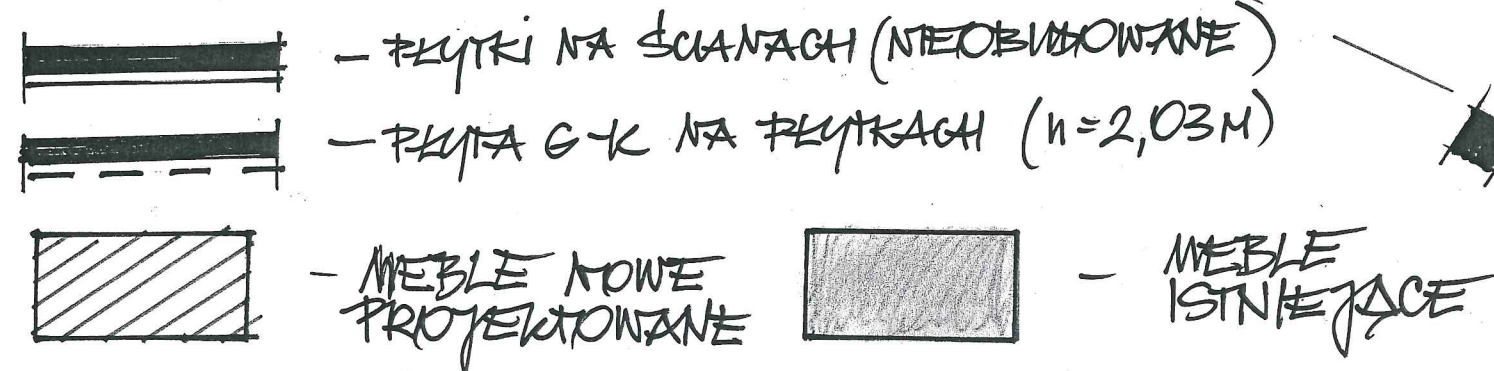 – PŁYTKI NA ŚCIANACH (NIEOBUDOWANE)
– PŁYTA G-K NA PŁYTKACH (h=2,03M)
– MEBLE NOWE
PROJEKTOWANE
– MEBLE
ISTNIEJĄCE